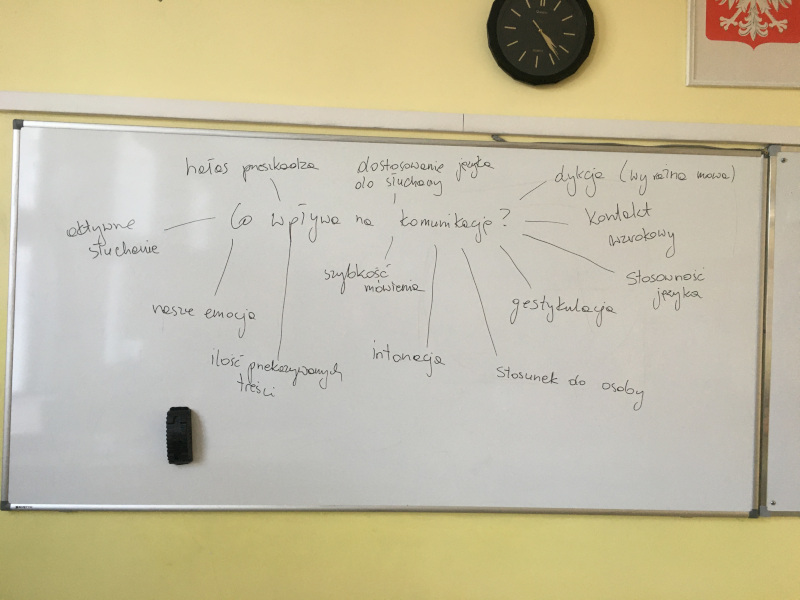 hałas przeszkadza
dostosowanie języka
do słuchaczy
dykcja (wyraźna mowa)
aktywne
słuchanie
Co wpływa na komunikację?
kontakt
wzrokowy
szybkość
mówienia
stosowność
języka
nasze emocje
gestykulacja
ilość przekazywanych
treści
intonacja
stosunek do osoby